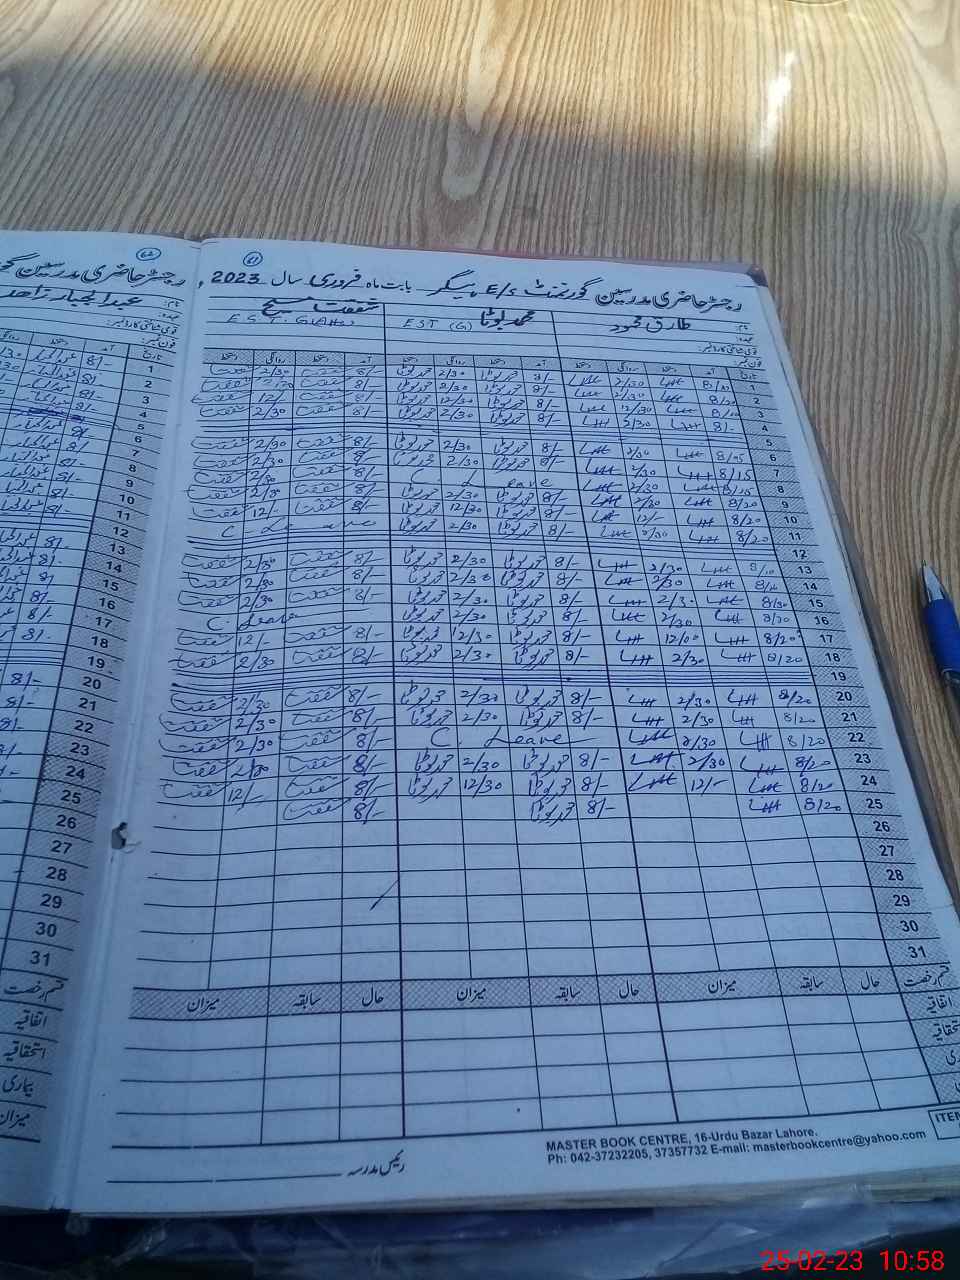 62
61
رجسٹر حاضری مدرسین گورنمنٹ E/S ہیگر بابت ماہ فروری سال 2023ء
نام: طارق محمود محمد بوٹا شفقت مسیح
عہدہ: EST (G) E.S.T.
قومی شناختی کارڈ نمبر:
فون نمبر:
تاریخ آمد دستخط روانگی دستخط آمد دستخط روانگی دستخط آمد دستخط روانگی دستخط
1 8/10 2/30 8/- محمد بوٹا 2/30 محمد بوٹا 8/- شفقت 2/30 شفقت
2 8/20 2/30 8/- محمد بوٹا 2/30 محمد بوٹا 8/- شفقت 2/30 شفقت
3 8/10 12/30 8/- محمد بوٹا 12/30 محمد بوٹا 8/- شفقت 12/- شفقت
4 8/- 2/30 8/- محمد بوٹا 2/30 محمد بوٹا 8/- شفقت 2/30 شفقت
5
6 8/15 2/30 8/- محمد بوٹا 2/30 محمد بوٹا 8/- شفقت 2/30 شفقت
7 8/15 2/30 8/- محمد بوٹا 2/30 محمد بوٹا 8/- شفقت 2/30 شفقت
8 8/15 2/30 C. Leave 8/- شفقت 2/30 شفقت
9 2/30 8/- محمد بوٹا 2/30 محمد بوٹا 8/- شفقت 2/30 شفقت
10 8/20 12/- 8/- محمد بوٹا 12/30 محمد بوٹا 8/- شفقت 12/- شفقت
11 8/20 2/30 8/- محمد بوٹا 2/30 محمد بوٹا C. Leave
12
13 8/10 2/30 8/- محمد بوٹا 2/30 محمد بوٹا 8/- شفقت 2/30 شفقت
14 2/30 8/- محمد بوٹا 2/30 محمد بوٹا 8/- شفقت 2/30 شفقت
15 8/30 2/30 8/- محمد بوٹا 2/30 محمد بوٹا 8/- شفقت 2/30 شفقت
16 8/20 2/30 8/- محمد بوٹا 2/30 محمد بوٹا C. Leave
17 8/20 12/00 8/- محمد بوٹا 12/30 محمد بوٹا 8/- شفقت 12/- شفقت
18 8/20 2/30 8/- محمد بوٹا 2/30 محمد بوٹا 8/- شفقت 2/30 شفقت
19
20 8/20 2/30 8/- محمد بوٹا 2/30 محمد بوٹا 8/- شفقت 2/30 شفقت
21 8/20 2/30 8/- محمد بوٹا 2/30 محمد بوٹا 8/- شفقت 2/30 شفقت
22 8/20 2/30 C. Leave 8/- شفقت 2/30 شفقت
23 8/20 2/30 8/- محمد بوٹا 2/30 محمد بوٹا 8/- شفقت 2/30 شفقت
24 8/20 12/- 8/- محمد بوٹا 12/30 محمد بوٹا 8/- شفقت 12/- شفقت
25 8/20 8/- محمد بوٹا 8/- شفقت
26
27
28
29
30
31
قسم رخصت حال سابقہ میزان حال سابقہ میزان حال سابقہ میزان
اتفاقیہ
استحقاقیہ
رئیس مدرسہ
MASTER BOOK CENTRE, 16-Urdu Bazar Lahore.
Ph: 042-37232205, 37357732 E-mail: masterbookcentre@yahoo.com
رجسٹر حاضری مدرسین
نام: عبدالجبار زاہد
عہدہ:
قومی شناختی کارڈ نمبر:
فون نمبر:
تاریخ آمد دستخط روانگی
1 8/-
2 8/-
3 8/-
4 8/-
5
6
7
8
9
10
11
12
13
14
15
16
17
18
19
20
21
22
23
24
25
26
27
28
29
30
31
قسم رخصت
اتفاقیہ
استحقاقیہ
بیماری
میزان
25-02-23 10:58